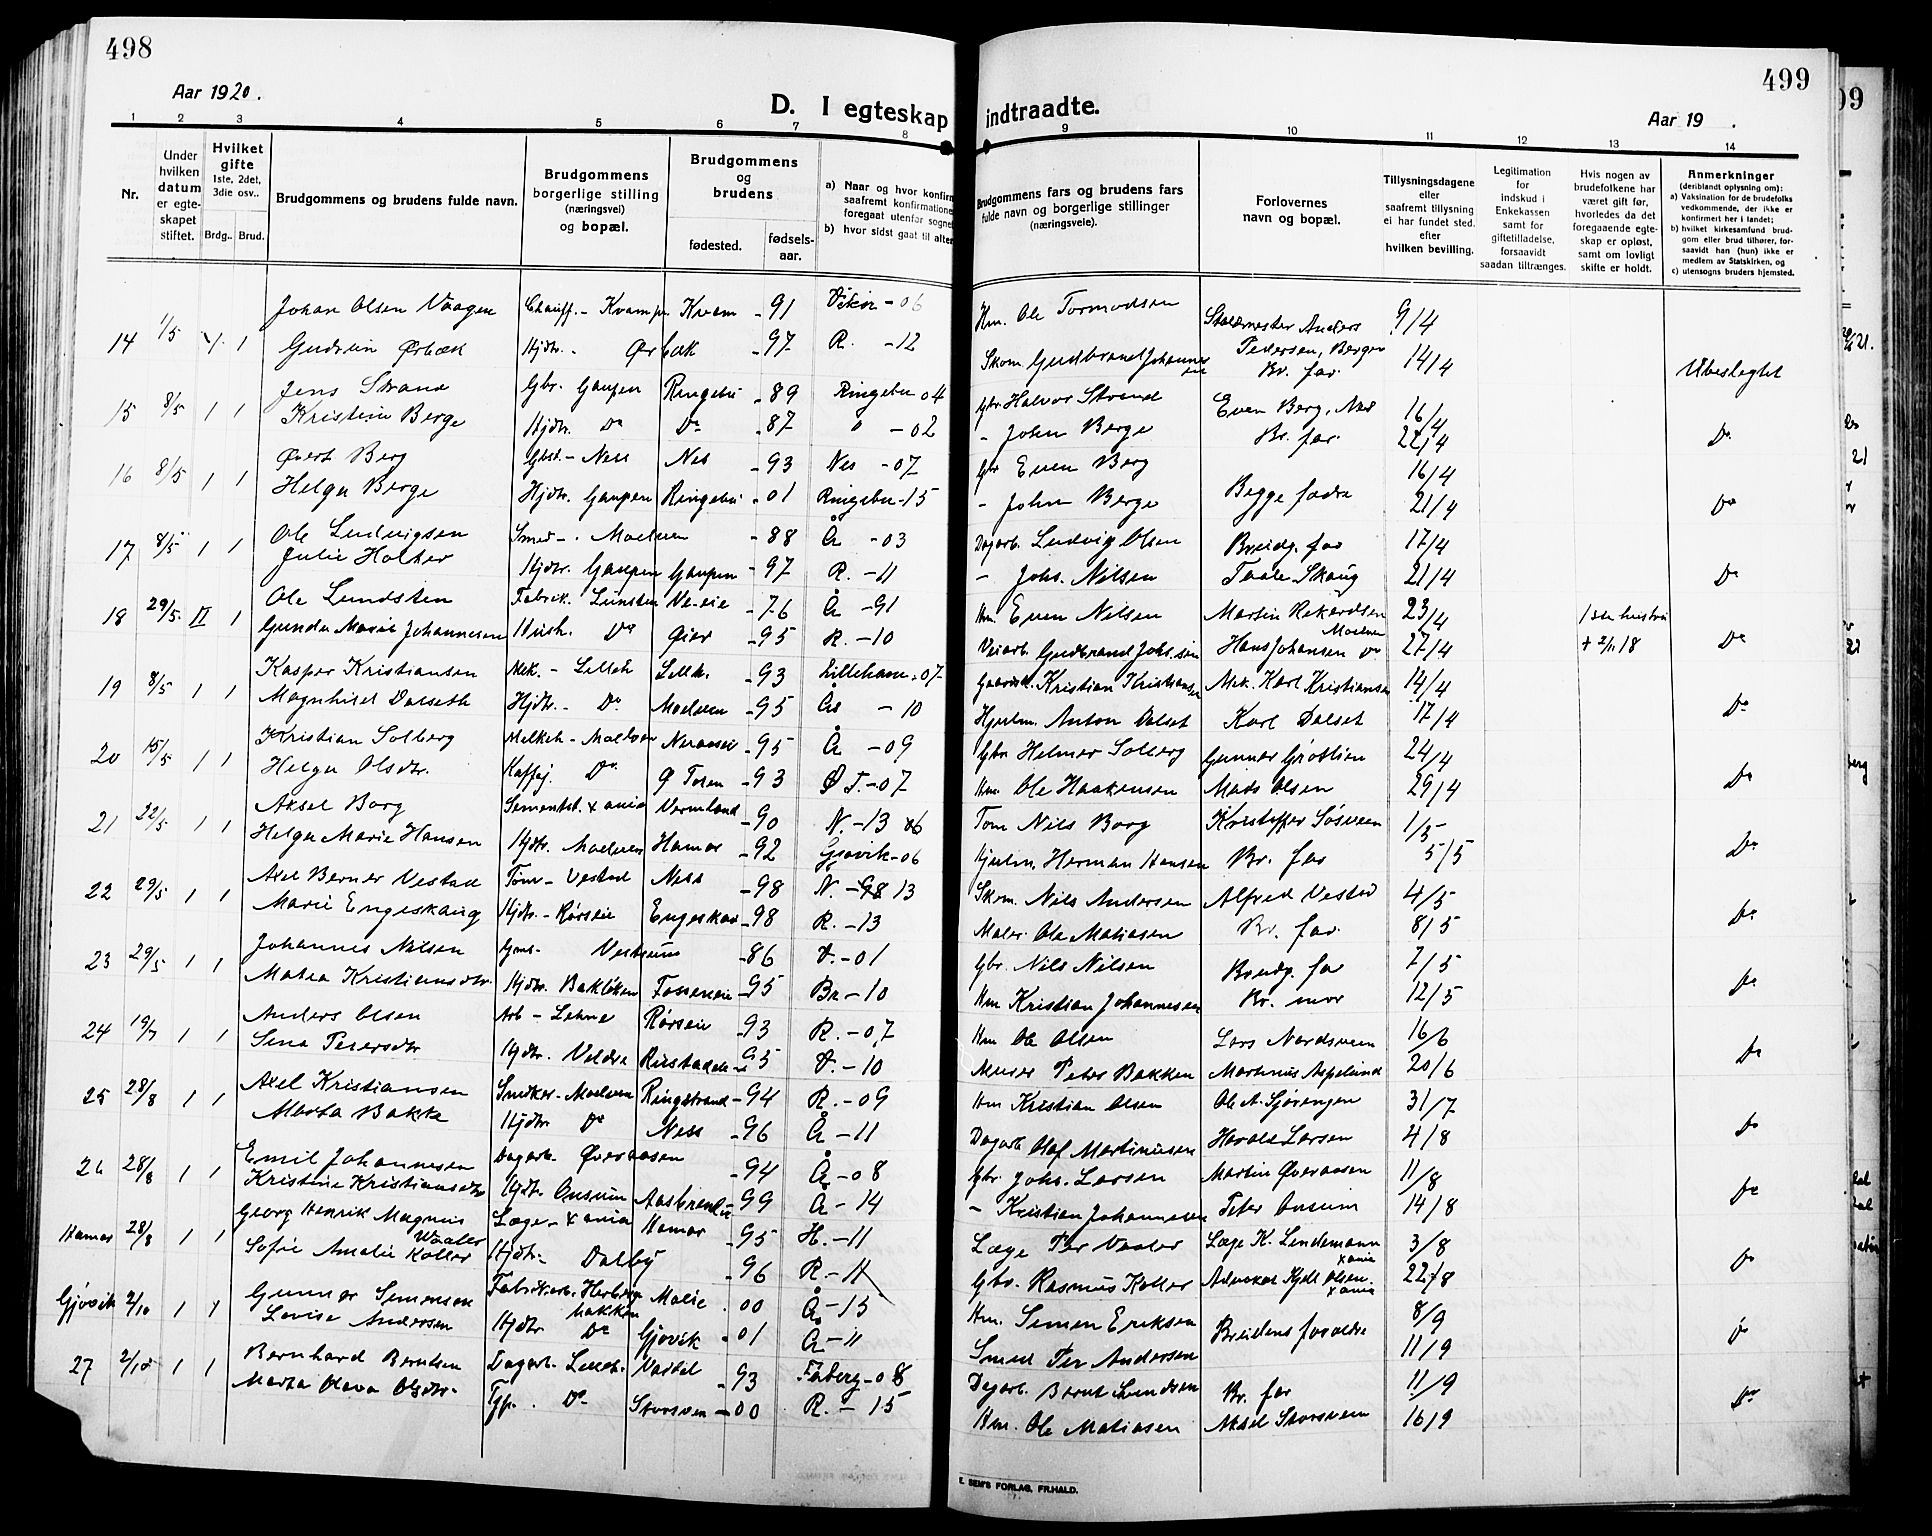 498
Aar 1920.
D. I egteskap
1 2 3 4 5 6 7 8
Nr.
Under hvilken datum er egteskapet stiftet.
Hvilket gifte 1ste, 2det, 3die osv..
Brdg.. Brud.
Brudgommens og brudens fulde navn.
Brudgommens borgerlige stilling (næringsvei) og bopæl.
Brudgommens og brudens
fødested. fødselsaar.
a) Naar og hvor konfir
saafremt konfirmatione
foregaat utenfor sogne
b) hvor sidst gaat til alter
14 1/5 1 Johan Olsen Vaagen Chauff. - Kvam Kvam - 91 - 06
Gudrun Ørbæk Hjdtr. - Ørbæk - 97 R. - 12
15 8/5 1 1 Jens Strand Gbr. Gaupen Ringebu - 89 Ringebu - 04
Kristine Berge Hjdtr. Do Do - 87 " - 02
16 8/5 1 1 Øvert Berg Gbst. - Ness Nes - 93 Nes - 07
Helga Berge Hjdtr. Gaupen Ringebu - 01 Ringebu - 15
17 8/5 1 1 Ole Ludvigsen Smed - Moelven - 88 Å - 03
Julie Holter Hjdtr. Gaupen Gaupen - 97 R. - 11
18 29/5 II 1 Ole Lundsten Fabrik. Lunsten - 76 Å - 91
Gunda Marie Johannesen Hush. Do Øier - 95 R. - 10
19 8/5 1 1 Kasper Kristiansen Mek. - Lilleh Lilleh. - 93 Lilleham - 07
Magnhild Dalseth Hjdtr. - Do Moelven - 95 Ås - 10
20 15/5 1 1 Kristian Solberg Melkeh - Moelven - 95 Å - 09
Helga Olsdtr. Kaffej. Do Ø Toten - 93 Ø T. - 07
21 22/5 1 1 Aksel Borg Sementst. Xania Vermland - 90 N. - 13
Helga Marie Hansen Hjdtr. Moelven Hamar - 92 Gjøvik - 06
22 29/5 1 1 Axel Berner Vestad Tøm - Vestad Ness - 98 N. - 13
Marie Engeskaug Hjdtr. - Rørseie Engeskau - 98 R. - 13
23 29/5 1 1 Johannes Nilsen Gms. Vestsum - 86 V. - 01
Matea Kristiansdtr. Hjdtr. Bakliken - 95 Br. - 10
24 19/7 1 1 Anders Olsen Arb - Lehne Rørseie - 93 R. - 07
Sina Petersdtr Hjdtr. Veldre - 95 V. - 10
25 28/8 1 1 Axel Kristiansen Sndker - Moelven Ringstrand - 94 R. - 09
Marta Bakke Hjdtr Do Ness - 96 Å - 11
26 28/8 1 1 Emil Johannesen Dagarb. Øveraasen - 94 Å - 08
Kristine Kristiansdtr Hjdtr. Onsum - 99 Å - 14
Hamar 28/8 1 1 Georg Henrik Magnus Waaler Læge - Xania Hamar - 95 H. - 11
Sofie Amalie Koller Hjdtr. Dalby - 96 R - 11
Gjøvik 2/10 1 1 Gunnar Simensen Moelv . 00 Å - 15
Lovise Andersen Hjdtr Do Gjøvik . 01 Å - 11
27 2/10 1 1 Bernhard Berntsen Dagarb. Lilleh. - 93 Faberg - 08
Marta Olava Olsdtr. Do Storsven - 00 R. - 15
499
Aar 19 .
indtraadte.
9 10 11 12 13 14
Brudgommens fars og brudens fars fulde navn og borgerlige stillinger (næringsveie).
Forlovernes navn og bopæl.
Tillysningsdagene eller saafremt tillysning ei har fundet sted. efter hvilken bevilling.
Legitimation for indskud i Enkekassen samt for giftetilladelse, forsaavidt saadan tiltrænges.
Hvis nogen av brudefolkene har været gift før, hvorledes da det foregaaende egteskap er opløst, samt om lovligt skifte er holdt.
Anmerkninger (deriblandt oplysning om): a) Vaksination for de brudefolks vedkommende, der ikke er konfirmert her i landet; b) hvilket kirkesamfund brudgom eller brud tilhører, forsaavidt han (hun) ikke er medlem av Statskirken, og c) utensogns bruders hjemsted.
Hm. Ole Tormodsen Staldmester Anders Pedersen, Bergen 9/4
Skom. Gudbrand Johannessen Br. far. 14/4 Ubeslegtet
Gbr Halvor Strand Even Berg, Nes 16/4
- John Berge Br. far. 22/4 Do
Gbr Even Berg Begge fædre 16/4
- John Berge 21/4 Do
Dagarb. Ludvig Olsen Brudg. far 17/4
- Johs. Nilsen Taale Skaug 21/4 Do
Hm. Even Nilsen Martin Rikardsen Moelven 23/4 1ste hustru
Veiarb. Gudbrand Johs.sen Hans Johansen Do 27/4 + 2/11 18 Do
Kristian Kristiansen Mek. Karl Kristiansen 14/4
Hjulm. Anton Dalset Karl Dalset 17/4 Do
Gbr Helmer Solberg Gunnar Grøtlien 24/4
Hm Ole Haakensen Mads Olsen 29/4 Do
Tom Nils Borg Kristoffer Søsveen 1/5
Hjulm. Herman Hansen Br. far 5/5 Do
Skom. Nils Andersen Alfred Vestad 4/5
Maler Ole Matiasen Br. far. 8/5 Do
Gbr. Nils Nilsen Brudg. far 7/5
Hm Kristian Johannesen Br. mor 12/5 Do
Hm Ole Olsen Lars Nordsveen 16/6
Murer Peter Bakken Martinus Aspelund 20/6 Do
Hm Kristian Olsen Ole A. Sjørengen 31/7
Dagarb Olaf Martinusen Harald Larsen 4/8 Do
Gbr Johs. Larsen Martin Øveraasen 11/8
- Kristian Johannesen Peter Onsum 14/8 Do
Læge Per Vaaler Læge K. Lindemann Xania 3/8
Gbr. Rasmus Koller Advokat Kjell Olsen Xania 22/8 Do
Hm. Simen Eriksen Brudens foraldre 8/9
Smed Per Andersen 11/9 Do
Dagarb. Bernt Svendsen Br. far 11/9
Hm. Ole Matiasen Aksel Storsveen 16/9 Do
E. SEM'S FORLAG, FR.HALD.